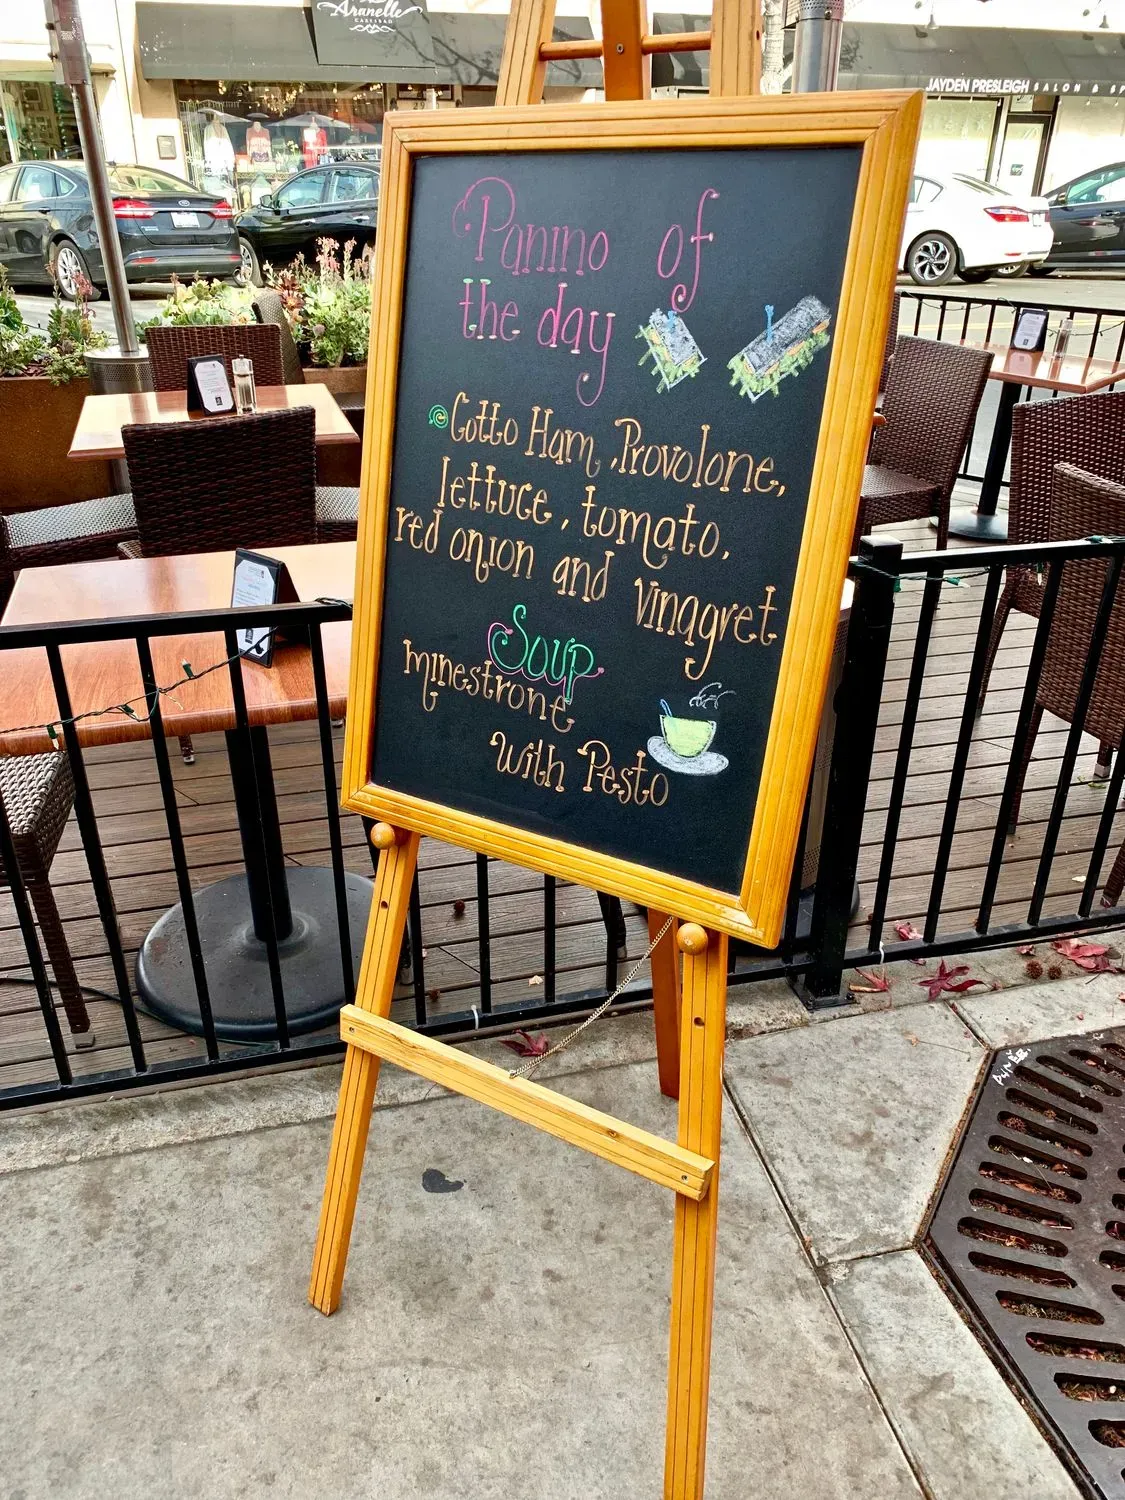 Aranelle
JAYDEN PRESLEIGH SALON & SP
Panino of
the day
Cotto Ham, Provolone,
lettuce, tomato,
red onion and vinagret
Soup
minestrone
with Pesto